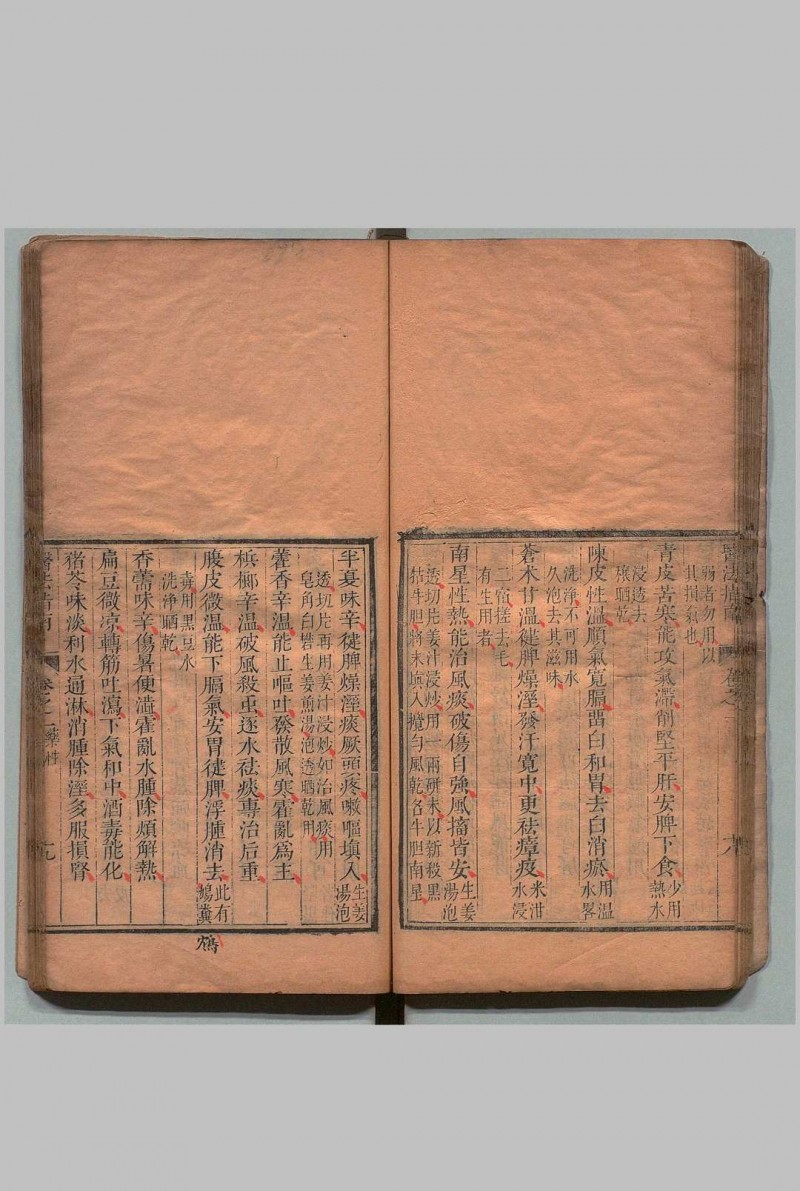 弱者勿用以
其損氣也
青皮苦寒能攻氣滯削堅平肝安脾下食少用熱水
浸透去
穰晒乾
陳皮性溫順氣寬膈畱白和胃去白消瘀用温水畧
洗淨不可用水
久泡去其滋味
蒼朮甘溫健脾燥溼發汗寛中更祛瘴疫米泔水浸
二宿搓去毛
有生用者
南星性熱能治風痰破傷自強風搐皆安生姜湯泡
透切片姜汁浸炒用一兩研末以新殺黒
牯牛胆將末塩入攪勻風乾名牛胆南星
半夏味辛健脾燥溼痰厥頭疼嗽嘔塡入生姜湯泡
透切片再用姜汁浸炒如治風痰用
皂角白礬生姜煎湯泡透晒乾用
藿香辛溫能止嘔吐發散風寒霍亂爲主
梹榔辛温破風殺虫逐水祛痰專治后重
腹皮微温能下膈氣安胃健脾浮腫消去此有鴆糞
毒用黒豆水
洗淨晒乾
香薷味辛傷暑便澁霍亂水腫除煩解熱
扁豆微凉轉筋吐瀉下氣和中酒毒能化
猪苓味淡利水通淋消腫除溼多服損腎
醫法指南
卷之二
十九
鴆